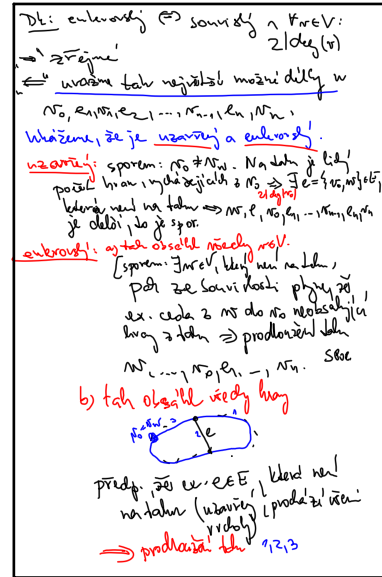 Dk: eulerovský ⇔ souvislý ∧ ∀v∈V:
2|deg(v)
"⇒" zřejmé
"⇐" uvažme tah nejdelší možné délky n
v₀, e₁, v₁, e₂, ..., vₙ₋₁, eₙ, vₙ,
Ukážeme, že je uzavřený a eulerovský.
uzavřený: sporem: v₀ ≠ vₙ. Na tahu je lichý
počet hran, vycházejících z v₀ ⇒ ∃ e={v₀,w}∈E,
2|deg(v₀)
která není na tahu ⇒ w, e, v₀, e₁, ..., vₙ₋₁, eₙ, vₙ
je delší, to je spor.
eulerovský: a) tah obsahuje všechny v∈V.
[sporem: ∃w∈V, který není na tahu,
pak ze souvislosti plyne, že
ex. cesta z w do v₀ neobsahující
hrany z tahu ⇒ prodloužení tahu
w, ..., v₀, e₁, ..., vₙ. spor
b) tah obsahuje všechny hrany
v₀=vₙ 3 2 e 1
předp., že ex. e∈E, která není
na tahu (uzavřený, prochází všemi
vrcholy)
⇒ prodloužení tahu 1,2,3